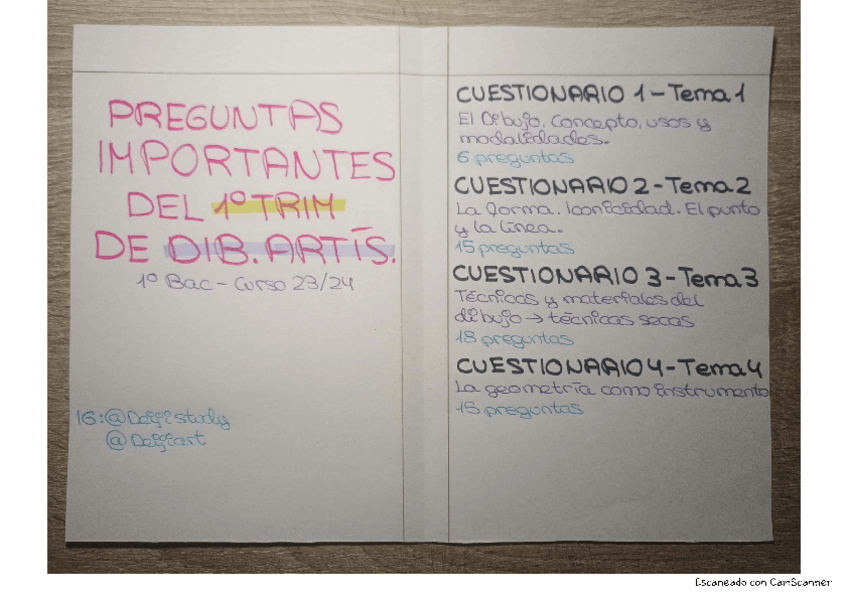 PREGUNTAS
IMPORTANTES
DEL 1º TRIM
DE DIB. ARTÍS.
1º Bac - Curso 23/24
IG: @Deifistudy
@Deifiart
CUESTIONARIO 1 - Tema 1
El Dibujo. Concepto, usos y
modalidades.
6 preguntas
CUESTIONARIO 2 - Tema 2
La forma. Iconicidad. El punto
y la línea.
15 preguntas
CUESTIONARIO 3 - Tema 3
Técnicas y materiales del
dibujo → técnicas secas
18 preguntas
CUESTIONARIO 4 - Tema 4
La geometría como instrumento
15 preguntas
Escaneado con CamScanner